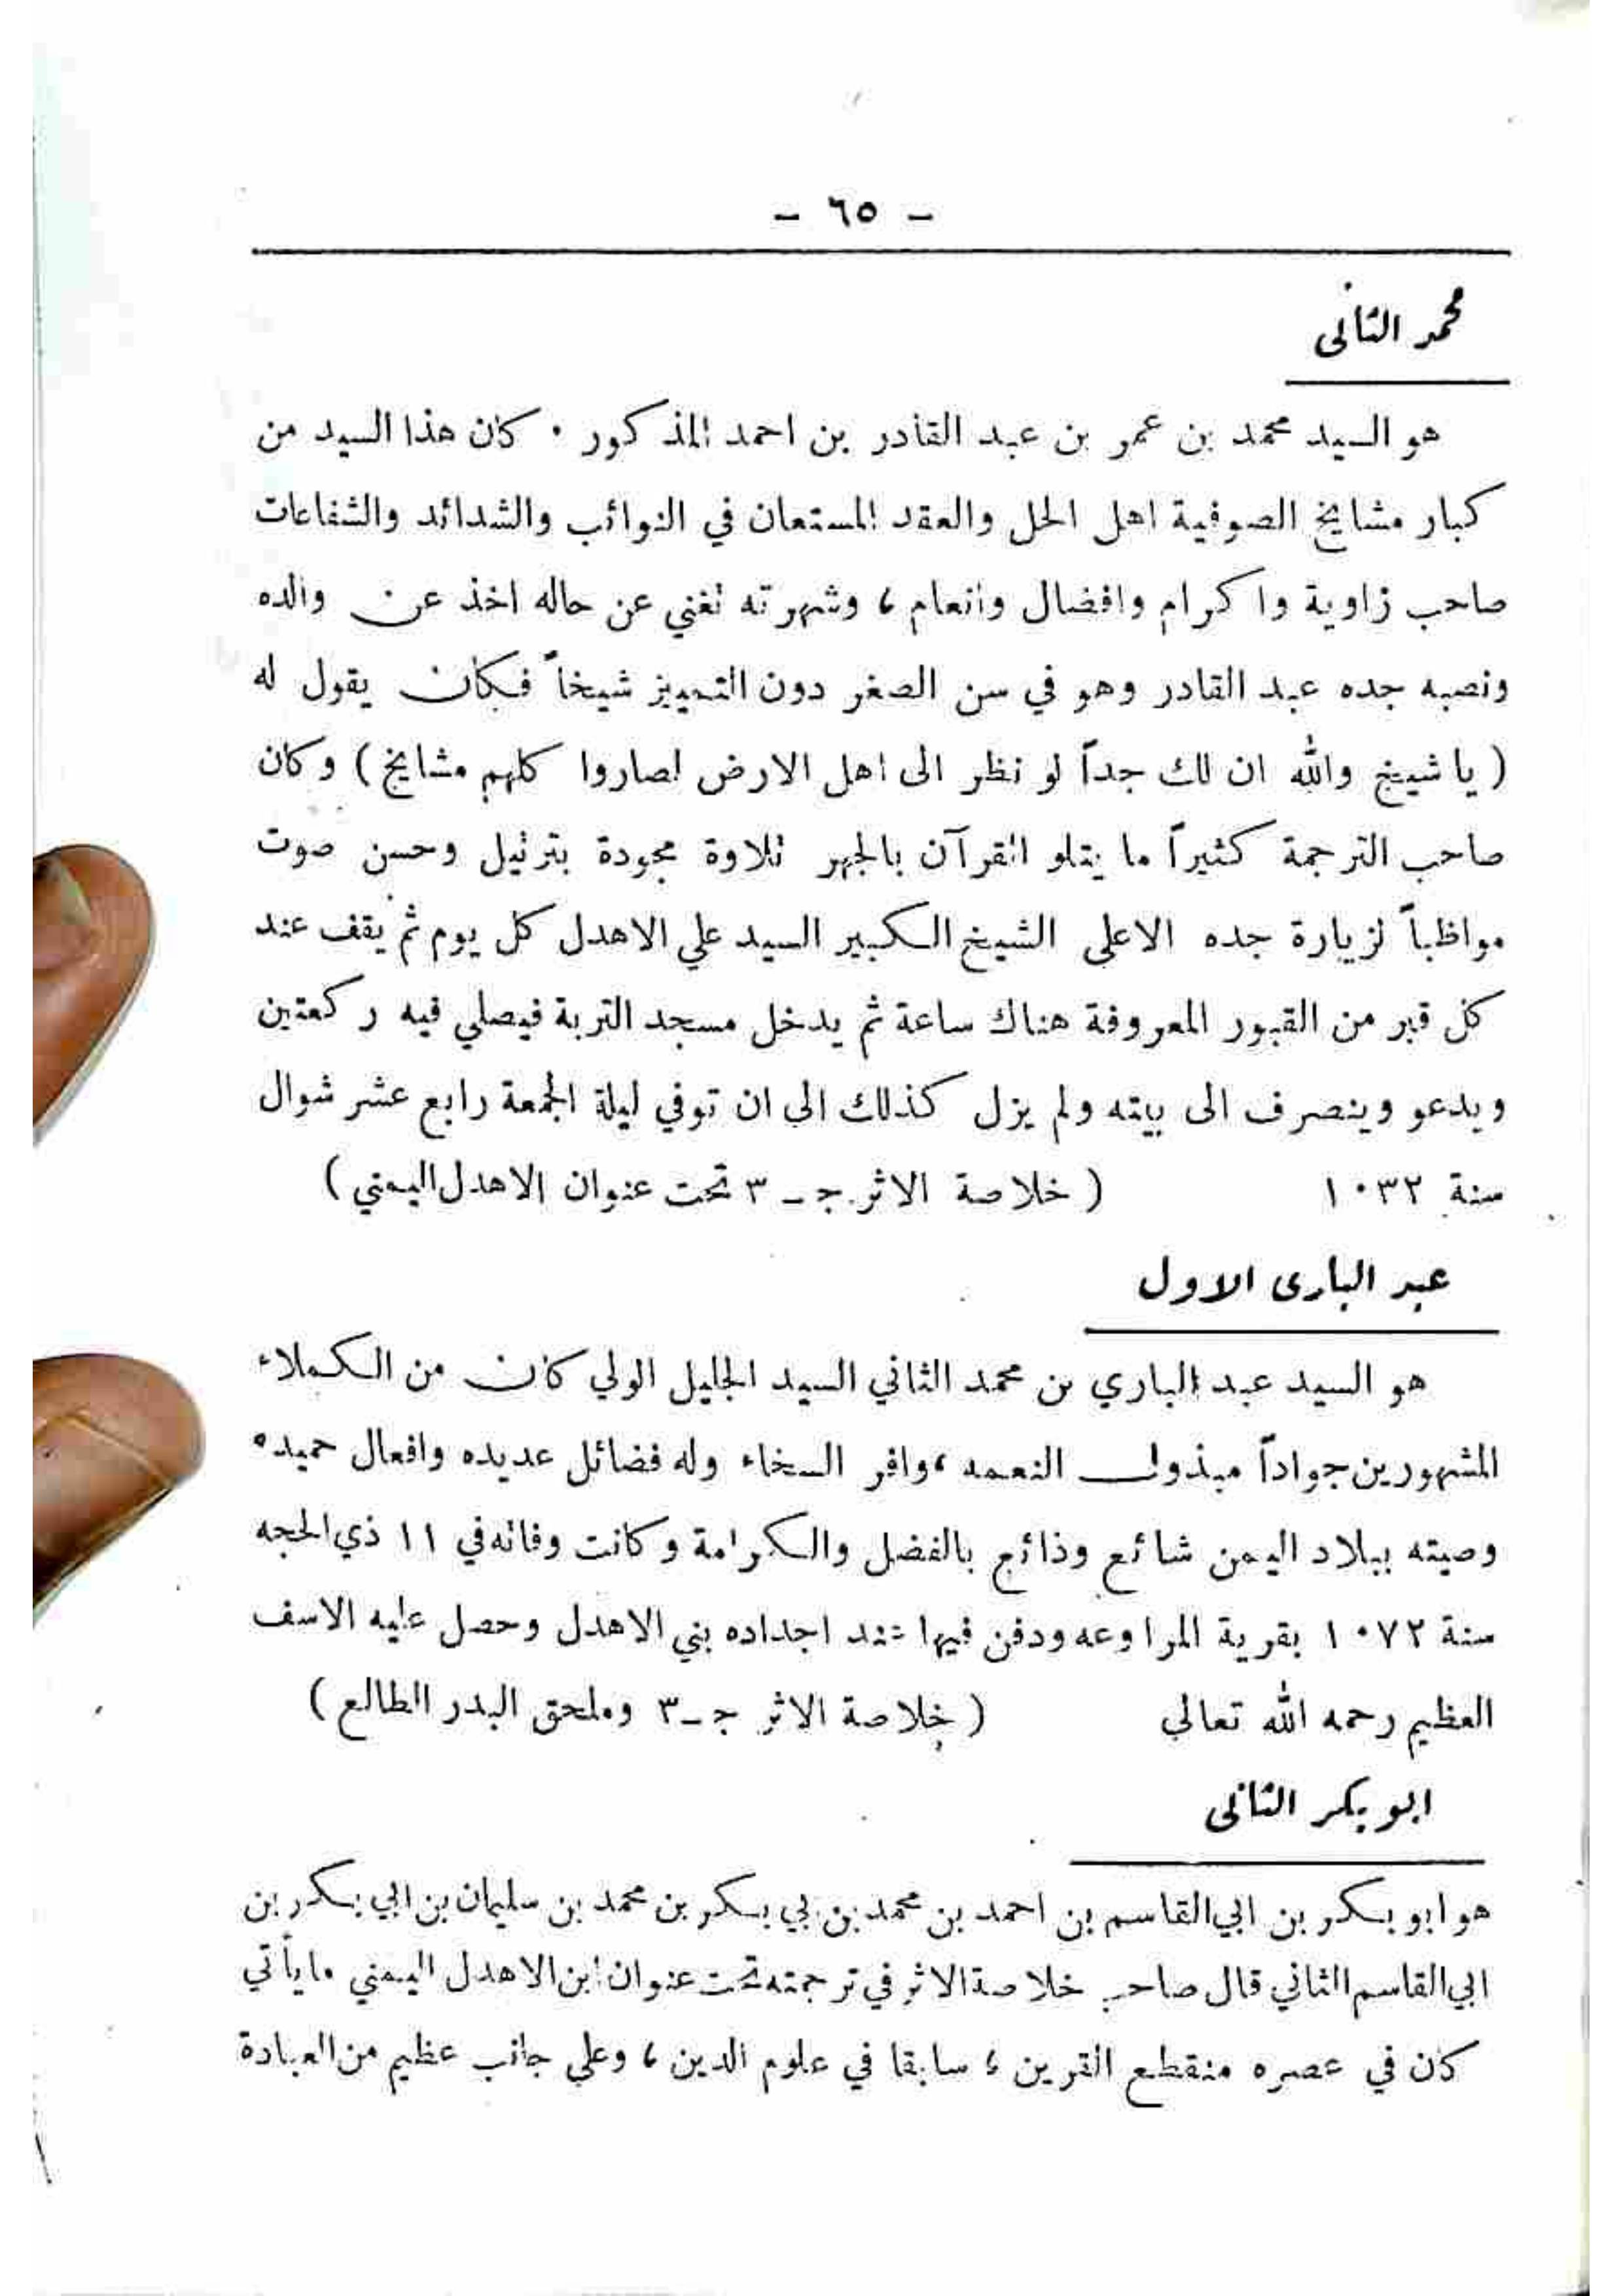 - ٦٥ -
محمد الثاني
هو السيد محمد بن عمر بن عبد القادر بن احمد المذكور . كان هذا السيد من
كبار مشايخ الصوفية اهل الحل والعقد المستعان في النوائب والشدائد والشفاعات
صاحب زاوية واكرام وافضال وانعام ، وشهرته تغني عن حاله اخذ عن والده
ونصبه جده عبد القادر وهو في سن الصغر دون التمييز شيخاً فكان يقول له
( يا شيخ والله ان لك جداً لو نظر الى اهل الارض لصاروا كلهم مشايخ ) وكان
صاحب الترجمة كثيراً ما يتلو القرآن بالجهر تلاوة مجودة بترتيل وحسن صوت
مواظباً لزيارة جده الاعلى الشيخ الكبير السيد علي الاهدل كل يوم ثم يقف عند
كل قبر من القبور المعروفة هناك ساعة ثم يدخل مسجد التربة فيصلي فيه ركعتين
ويدعو وينصرف الى بيته ولم يزل كذلك الى ان توفي ليلة الجمعة رابع عشر شوال
سنة ١٠٣٢ ( خلاصة الاثر جـ ٣ تحت عنوان الاهدل اليمني )
عبد البارى الاول
هو السيد عبد الباري بن محمد الثاني السيد الجليل الولي كان من الكملاء
المشهورين جواداً مبذول النعمه ، وافر السخاء وله فضائل عديده وافعال حميده
وصيته ببلاد اليمن شائع وذائع بالفضل والكرامة وكانت وفاته في ١١ ذي الحجه
سنة ١٠٧٢ بقرية المراوعه ودفن فيها عند اجداده بني الاهدل وحصل عليه الاسف
العظيم رحمه الله تعالى ( خلاصة الاثر جـ ٣ وملحق البدر الطالع )
ابو بكر الثاني
هو ابو بكر بن ابي القاسم بن احمد بن محمد بن ابي بكر بن محمد بن سليمان بن ابي بكر بن
ابي القاسم الثاني قال صاحب خلاصة الاثر في ترجمته تحت عنوان ابن الاهدل اليمني ما يأتي
كان في عصره منقطع القرين ، سابقا في علوم الدين ، وعلى جانب عظيم من العبادة